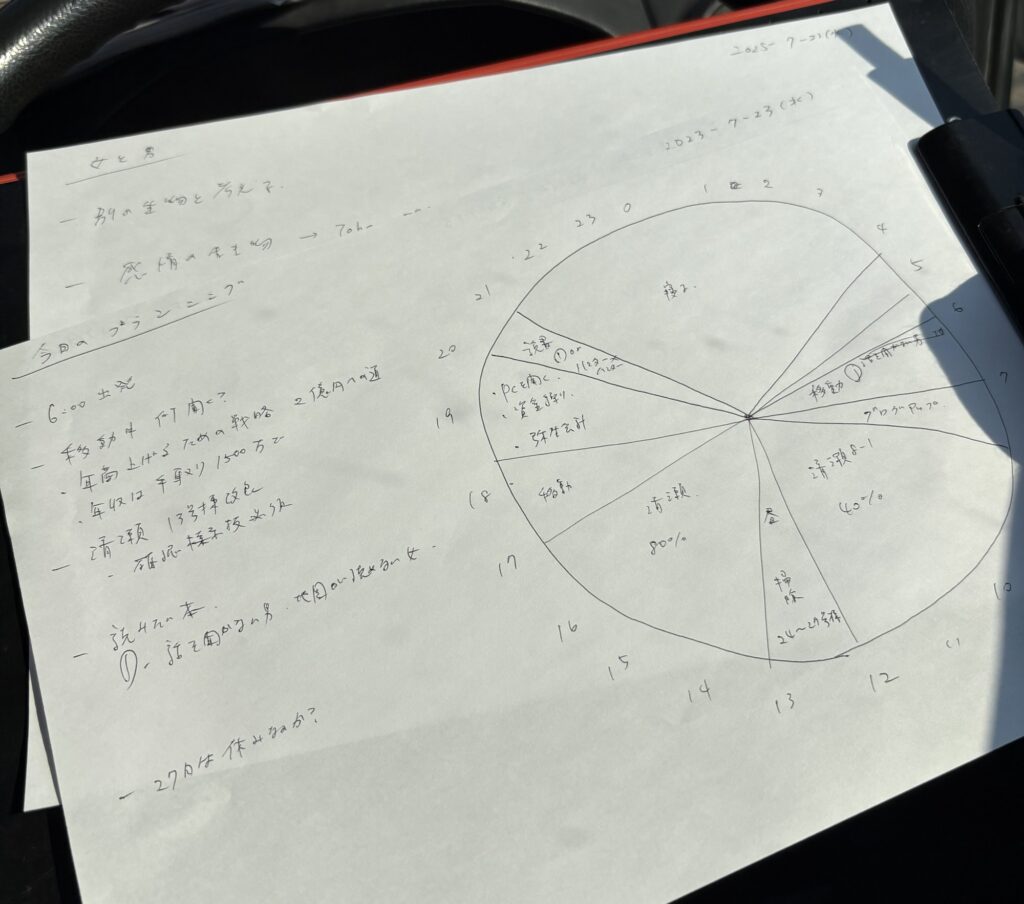 2025-7-23(水)
女と男
― 別の生物と考える.
― 感情の生物 →
2023-7-23(水)
今日のプランニング
― 6:00 出発
― 移動中 何聞く?
・年商上げるための戦略 2億円への道
・年収は手取り1500万で
― 清瀬 13号棟
― 読みたい本.
① ・話を聞かない男、地図が読めない女.
― 27日は休みなのか?
0
1
2
3
4
5
6
7
10
11
12
13
14
15
16
17
18
19
20
21
22
23
寝る
移動 ①
ブログ
清瀬8-1
40%
掃除
24〜27号棟
昼
清瀬.
80%
移動
・PCを開く
・資金繰り
・弥生会計
読書
① or